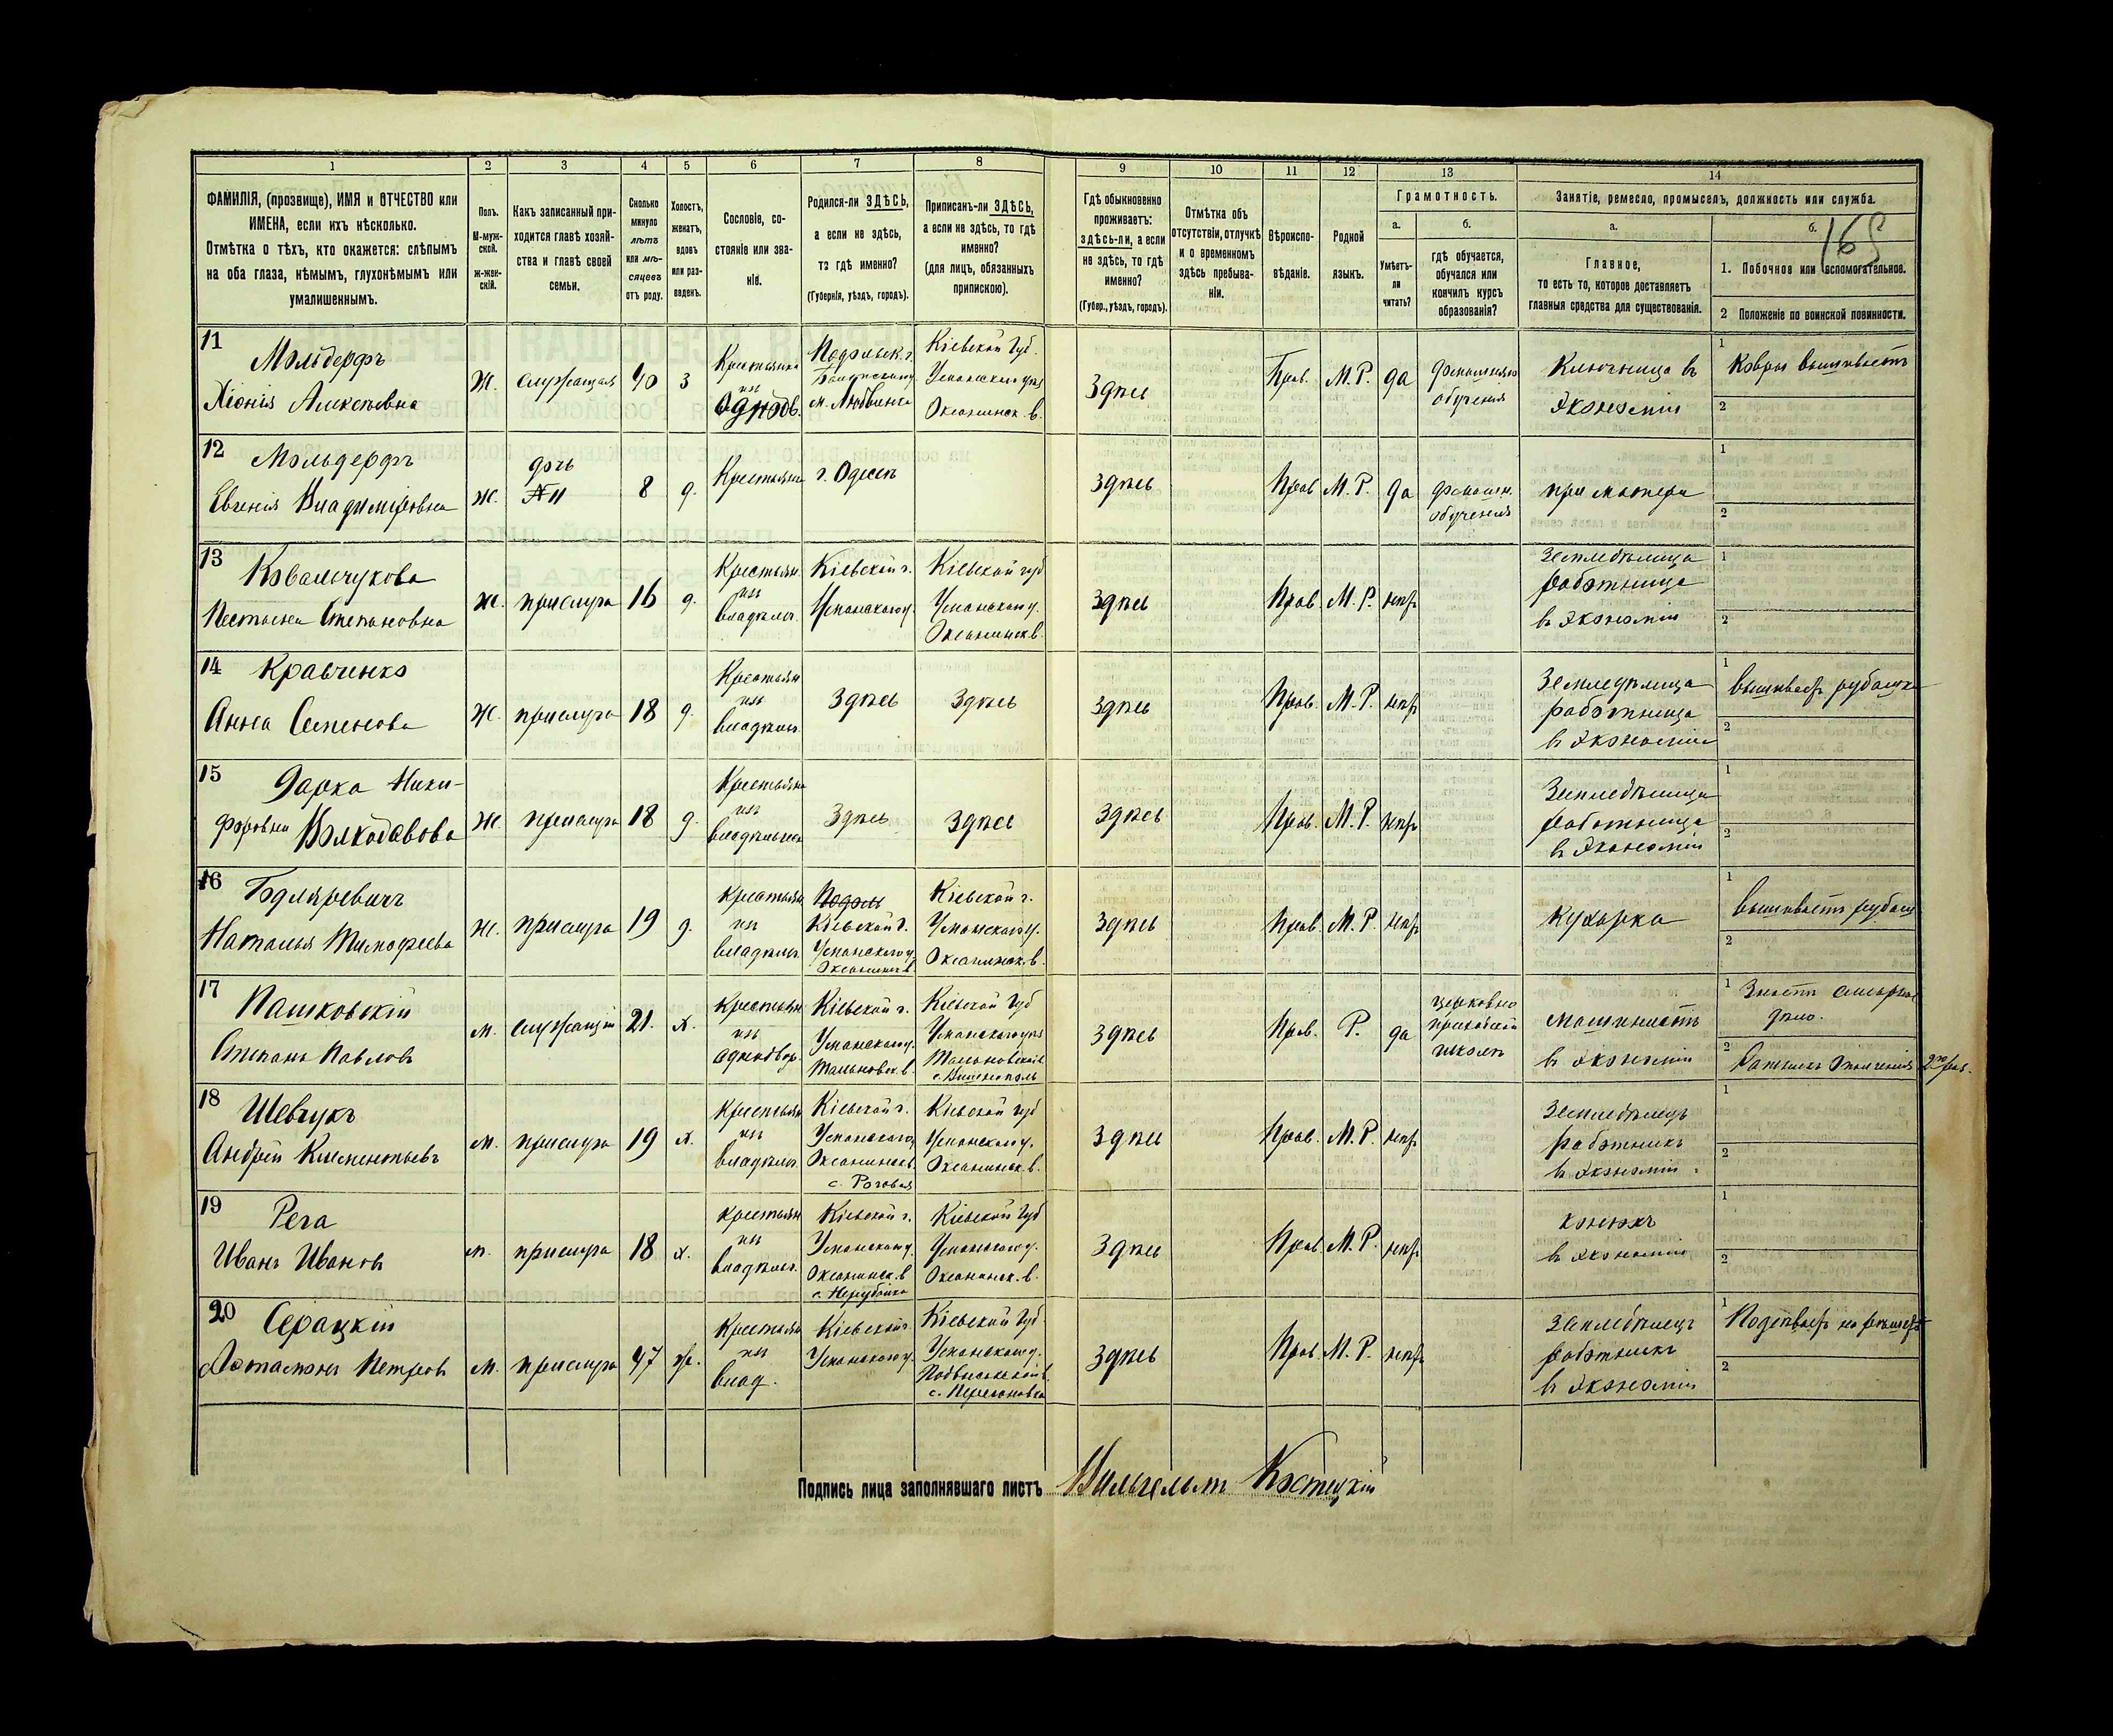 1
2
3
4
5
6
7
8
9
10
11
12
13
14
ФАМИЛІЯ, (прозвище), ИМЯ и ОТЧЕСТВО или
ИМЕНА, если ихъ нѣсколько.
Отмѣтка о тѣхъ, кто окажется: слѣпымъ
на оба глаза, нѣмымъ, глухонѣмымъ или
умалишеннымъ.
Полъ.
М-муж-
ской.
ж-жен-
скій.
Какъ записанный при-
ходится главѣ хозяй-
ства и главѣ своей
семьи.
Сколько
минуло
лѣтъ
или мѣ-
сяцевъ
отъ роду.
Холостъ,
женатъ,
вдовъ
или раз-
веденъ.
Сословіе, со-
стояніе или зва-
ніе.
Родился-ли ЗДѢСЬ,
а если не здѣсь,
то гдѣ именно?
(Губернія, уѣздъ, городъ).
Приписанъ-ли ЗДѢСЬ,
а если не здѣсь, то гдѣ
именно?
(для лицъ, обязанныхъ
припискою).
Гдѣ обыкновенно
проживаетъ:
здѣсь-ли, а если
не здѣсь, то гдѣ
именно?
(Губер., уѣздъ, городъ).
Отмѣтка объ
отсутствіи, отлучкѣ
и о временномъ
здѣсь пребыва-
ніи.
Вѣроиспо-
вѣданіе.
Родной
языкъ.
Грамотность.
а.
Умѣетъ-
ли
читать?
б.
гдѣ обучается,
обучался или
кончилъ курсъ
образованія?
Занятіе, ремесло, промыселъ, должность или служба.
а.
Главное,
то есть то, которое доставляетъ
главныя средства для существованія.
б.
1. Побочное или вспомогательное.
2 Положеніе по воинской повинности.
11
Мольдерфъ
Хіонія Алексѣевна
Ж.
служащая
40
з
Крестьянка
изъ
однодв.
Подольск. г.
м. Любвинка
Кіевской Губ.
Уманскаго уѣз
Оксанинск. в.
Здѣсь
Прав.
М. Р.
да
домашняго
обученія
Ключница въ
Экономіи
1
Ковры вышиваетъ
2
12
Мольдерфъ
Евгенія Владимировна
ж.
дочь
№ 11
8
д.
Крестьянка
г. Одессѣ
здѣсь
Прав
М. Р.
да
домашн.
обученія
при матери
1
2
13
Ковальчукова
Степановна
ж.
прислуга
16
д.
Крестьян.
изъ
владѣльч.
Кіевской г.
Уманскаго у.
Кіевской губ
Уманскаго у.
Оксанинск в.
здѣсь
Прав.
М. Р.
нѣтъ
Земледѣлица
работница
въ Экономіи
1
2
14
Кравченко
Анна Семенова
ж.
прислуга
18
д.
Крестьян
изъ
владѣльч.
Здѣсь
Здѣсь
здѣсь
Прав.
М. Р.
нѣтъ
Земледѣлица
работница
въ Экономіи
1
вышиваетъ рубашки
2
15
Дарка Ники-
форовна
ж.
прислуга
18
д.
Крестьянка
изъ
владѣльческ
Здѣсь
здѣсь
здѣсь
Прав.
М. Р.
нѣтъ
Земледѣлица
работница
въ Экономіи
1
2
16
Бодляревичъ
Наталья Тимофеева
ж.
прислуга
19
д.
Крестьян
изъ
владѣльч.
Кіевской г.
Уманскаго у
Оксанинск в
Кіевской г.
Уманскаго у.
Оксанинск. в.
здѣсь
Прав.
М. Р.
нѣтъ
Кухарка
1
вышиваетъ рубаш
2
17
Пашковскій
Степанъ Павловъ
м.
служащій
21.
х.
Крестьян
изъ
однодвор.
Кіевской г.
Уманскаго у.
Тальновск. в.
Кіевской Губ
Уманскаго уѣз
Тальновской в
с. Вишнополь
здѣсь
Прав.
Р.
да
церковно
приходской
школѣ
Машинистъ
въ Экономіи
1
Знаетъ
дѣло.
2
Ратникъ ополченія 2го раз.
18
Шевчукъ
Андрей Климентьевъ
м.
прислуга
19
х.
Крестьян
изъ
владѣльч.
Кіевской г.
Уманскаго у
Оксанинск в.
с. Роговая
Кіевской губ
Уманскаго у.
Оксанинск. в.
здѣсь
Прав.
М. Р.
нѣтъ
Земледѣлецъ
работникъ
въ Экономіи
1
2
19
Рега
Иванъ Ивановъ
м.
прислуга
18
х.
Крестьян
изъ
владѣльч.
Кіевской г.
Уманскаго у
Оксанинск. в
с. Нерубайка
Кіевской Губ
Уманскаго у.
Оксанинск. в.
здѣсь
Прав.
М. Р.
нѣтъ
конюхъ
въ Экономіи
1
2
20
Серацкій
Артамонъ Петровъ
м.
прислуга
47
ж.
Крестьян
изъ
влад.
Кіевской г.
Уманскаго у.
Кіевской Губ
Уманскаго у.
Подвысоцкой в.
с. Перегоновка
здѣсь
Прав.
М. Р.
нѣтъ
Земледѣлецъ
работникъ
въ Экономіи
1
2
Подпись лица заполнявшаго листъ Вильгельмъ Костецкій